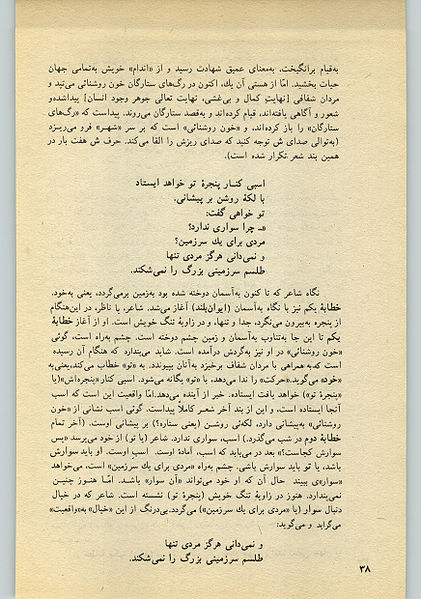 به‌قیام برانگیخت، به‌معنای عمیق شهادت رسید و از «اندام» خویش به‌تمامی جهان
حیات بخشید. امّا از هستی آن یك، اکنون در رگ‌های ستارگان خون روشنائی می‌تپد و
مردان شفافی [نهایتِ کمال و بی‌غشی، نهایت تعالی جوهر وجود انسان] پیداشده‌و
شعور و آگاهی یافته‌اند، قیام کرده‌اند و به‌قصد ستارگان می‌روند. پیداست که «رگ‌های
ستارگان» را باز کرده‌اند، و «خون روشنائی» است که بر سر «شهر» فرو می‌ریزد
(به‌توالی صدای ش توجه کنید که صدای ریزش را القا می‌کند. حرف ش هفت بار در
همین بند شعر تکرار شده است).
اسبی کنار پنجرهٔ تو خواهد ایستاد
با لکهٔ روشن بر پیشانی.
تو خواهی گفت:
«ــ چرا سواری ندارد؟
مردی برای یك سرزمین؟
و نمی‌دانی هرگز مردی تنها
طلسم سرزمینی بزرگ را نمی‌شکند.
نگاه شاعر که تا کنون به‌آسمان دوخته شده بود به‌زمین برمی‌گردد، یعنی به‌خود.
خطابهٔ یکم نیز با نگاه به‌آسمان (ایوان‌بلند) آغاز می‌شد. شاعر، یا ناظر، در این‌هنگام
از پنجره به‌بیرون می‌نگرد، جدا و تنها، و در زاویهٔ تنگ خویش است. او از آغاز خطابهٔ
یکم تا این جا به‌تناوب به‌آسمان و زمین چشم دوخته است. چشم به‌راه است، گوئی
«خون روشنائی» در او نیز به‌گردش درآمده است. شاید می‌پندارد که هنگام آن رسیده
است که‌به همراهی با مردان شفاف برخیزد به‌آنان بپیوندد. به «تو» خطاب می‌کند،یعنی‌به
«خود» می‌گوید.«حرکت» را ندا می‌دهد، با «تو» یگانه می‌شود. اسبی کنار «پنجره‌اش»(یا
«پنجرهٔ تو») خواهد یافت ایستاده. خبر از آینده می‌دهد.امّا واقعیت این است که اسب
آنجا ایستاده است، و این از بند آخر شعر کاملاً پیداست. گوئی اسب نشانی از «خون
روشنائی» به‌پیشانی دارد، لکه‌ئی روشن (یعنی ستاره؟) بر پیشانی اوست. (آخر تمام
خطابهٔ دوم در شب می‌گذرد.) اسب، سواری ندارد. شاعر (یا تو) از خود می‌پرسد «پس
سوارش کجاست؟!» بعد در می‌یابد که اسب، آمادهٔ اوست. اسبِ اوست. او باید سوارش
باشد، یا تو باید سوارش باشی. چشم به‌راه «مردی برای یك سرزمین» است، می‌خواهد
«سوار»ی ببیند حال آن که او خود می‌تواند «آن سوار» باشد. امّا هنوز چنین
نمی‌پندارد. هنوز در زاویهٔ تنگ خویش (پنجرهٔ تو) نشسته است. شاعر که در خیال
دنبال سوار (یا «مردی برای یك سرزمین») می‌گردد.بی‌درنگ از این «خیال» به‌«واقعیت»
می‌گراید و می‌گوید:
و نمی‌دانی هرگز مردی تنها
طلسم سرزمینی بزرگ را نمی‌شکند.
۳۸